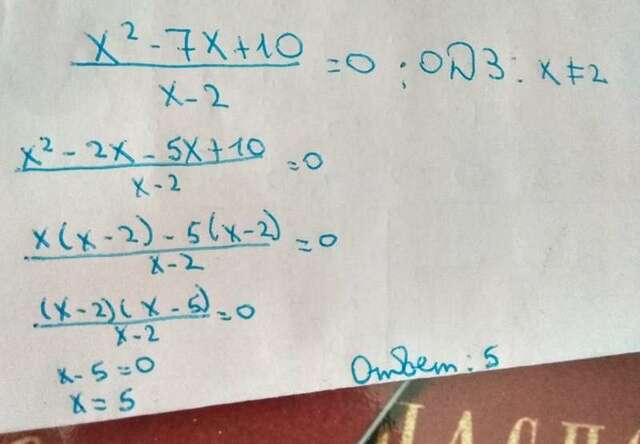 (x² - 7x + 10)/(x - 2) = 0 ; ОДЗ: x ≠ 2
(x² - 2x - 5x + 10)/(x - 2) = 0
(x(x - 2) - 5(x - 2))/(x - 2) = 0
((x - 2)(x - 5))/(x - 2) = 0
x - 5 = 0
x = 5
Ответ: 5